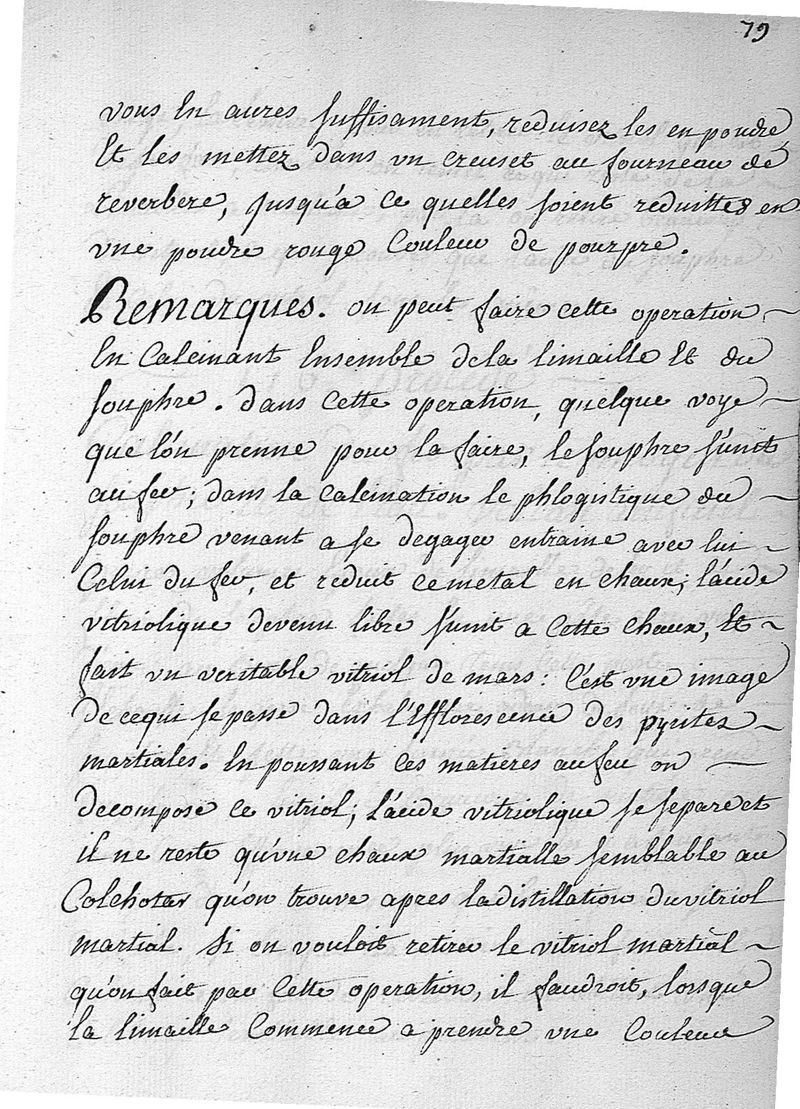 79
vous En aures suffisament, reduisez les en poudre,
Et les mettez dans vn creuset au fourneau de
reverbere, jusqu'a ce quelles soient reduittes en
vne poudre rouge Couleur de pourpre.
Remarques. on peut faire cette operation
En Calcinant Ensemble dela limaille Et du
souphre. dans Cette operation, quelque voye
que l'on prenne pour la faire, le souphre s'unit
au fer; dans la Calcination le phlogistique du
souphre venant a se degager entraine avec lui
Celui du fer, et reduit ce metal en chaux; l'acide
vitriolique devenu libre s'unit a Cette Chaux, Et
fait vn veritable vitriol de mars: C'est vne image
de cequi se passe dans l'Efflorescence des pyrites
martiales. En poussant ces matieres au feu on
decompose ce vitriol; l'acide vitriolique se separe et
il ne reste qu'vne chaux martialle semblable au
Colchotar qu'on trouve apres la distillation du vitriol
martial. Si on vouloit retirer le vitriol martial
qu'on fait par Cette operation, il faudroit, lorsque
la limaille Commence a prendre vne Couleur